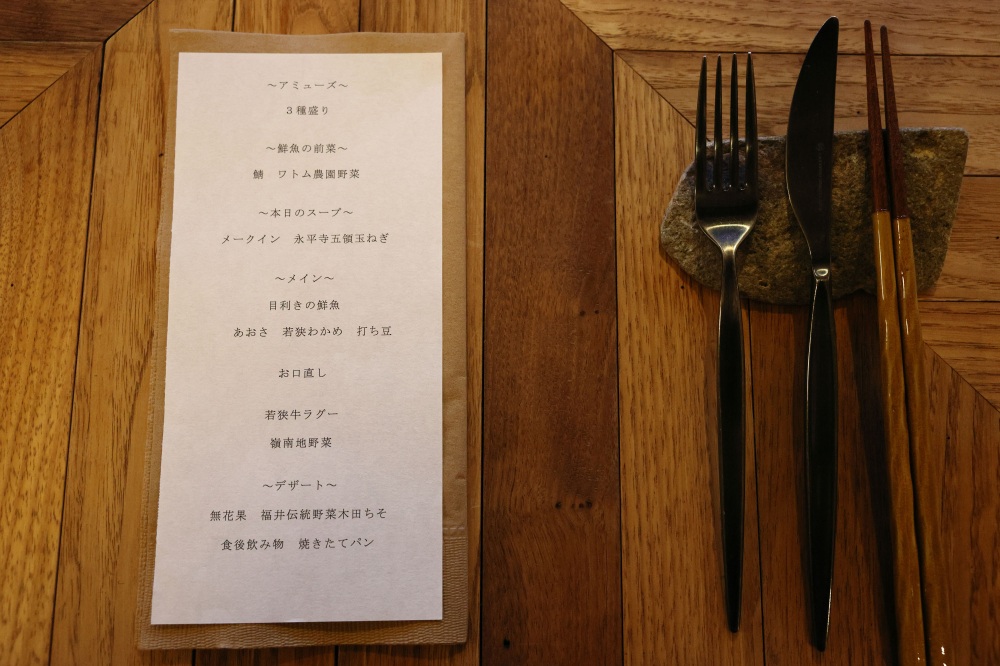 ～アミューズ～
３種盛り
～鮮魚の前菜～
鯖　ワトム農園野菜
～本日のスープ～
メークイン　永平寺五領玉ねぎ
～メイン～
目利きの鮮魚
あおさ　若狭わかめ　打ち豆
お口直し
若狭牛ラグー
嶺南地野菜
～デザート～
無花果　福井伝統野菜木田ちそ
食後飲み物　焼きたてパン